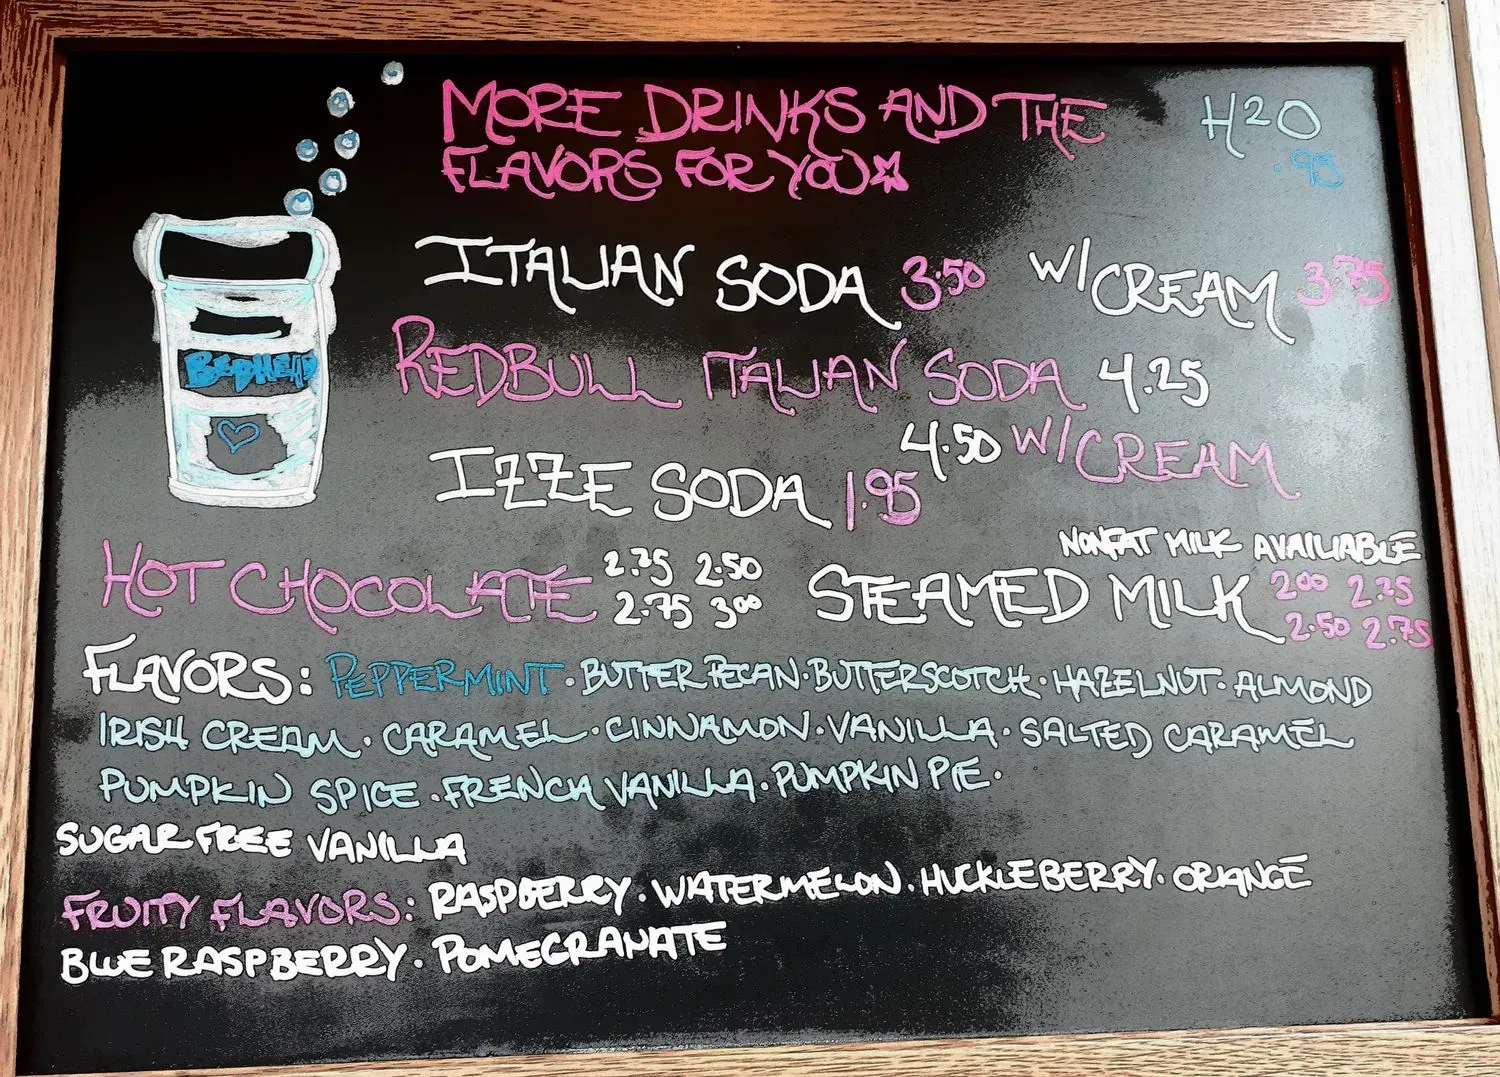 MORE DRINKS AND THE
FLAVORS FOR YOU
H2O
.95
ITALIAN SODA 3.50 W/CREAM 3.75
REDBULL ITALIAN SODA 4.25
4.50 W/CREAM
BEDHEAD
IZZE SODA 1.95
NONFAT MILK AVAILIABLE
HOT CHOCOLATE 2.25 2.50
2.75 3.00
STEAMED MILK 2.00 2.25
2.50 2.75
FLAVORS: PEPPERMINT · BUTTER PECAN · BUTTERSCOTCH · HAZELNUT · ALMOND
IRISH CREAM · CARAMEL · CINNAMON · VANILLA · SALTED CARAMEL
PUMPKIN SPICE · FRENCH VANILLA · PUMPKIN PIE ·
SUGAR FREE VANILLA
FRUITY FLAVORS: RASPBERRY · WATERMELON · HUCKLEBERRY · ORANGE
BLUE RASPBERRY · POMEGRANATE